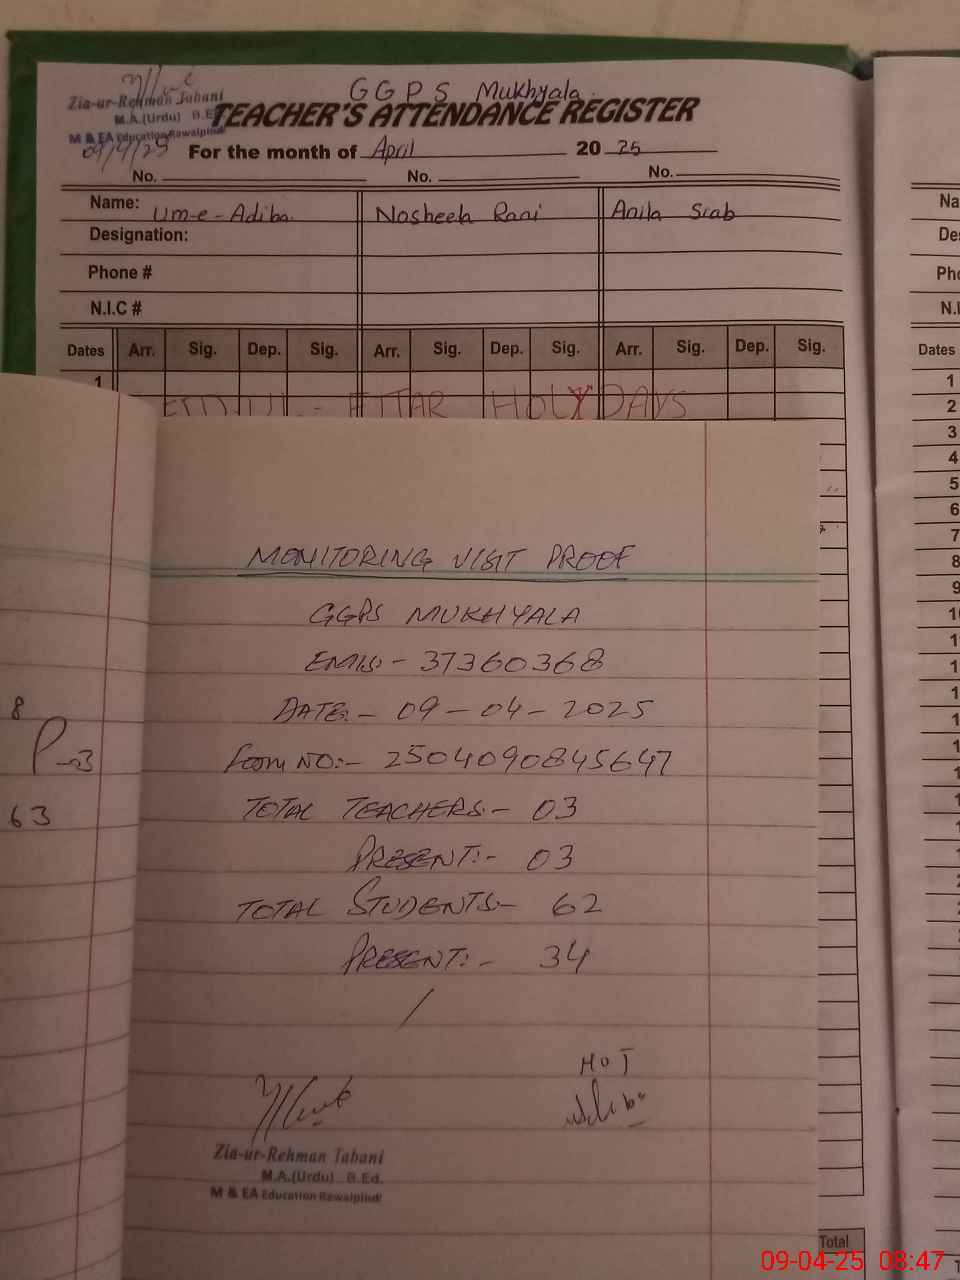 G G P S Mukhyala
Zia-ur-Rehman Tabani
M.A.(Urdu) B.Ed.
M & EA Education Rawalpindi
09/4/25
TEACHER'S ATTENDANCE REGISTER
For the month of April 20 25
No. No. No.
Name: Um-e-Adiba Nosheen Rani Anila
Designation:
Phone #
N.I.C #
Dates Arr. Sig. Dep. Sig. Arr. Sig. Dep. Sig. Arr. Sig. Dep. Sig.
1
EID-UL-FITAR HOLYDAYS
Na
De
Pho
N.I
Dates
1
2
3
4
5
6
7
8
9
MONITORING VISIT PROOF
GGPS MUKHYALA
EMIS:- 37360368
DATE:- 09-04-2025
Form NO:- 2504090845647
TOTAL TEACHERS:- 03
PRESENT:- 03
TOTAL STUDENTS:- 62
PRESENT:- 34
/
8
P-3
63
HOT
Zia-ur-Rehman Tabani
M.A.(Urdu) B.Ed.
M & EA Education Rawalpindi
Total
09-04-25 08:47